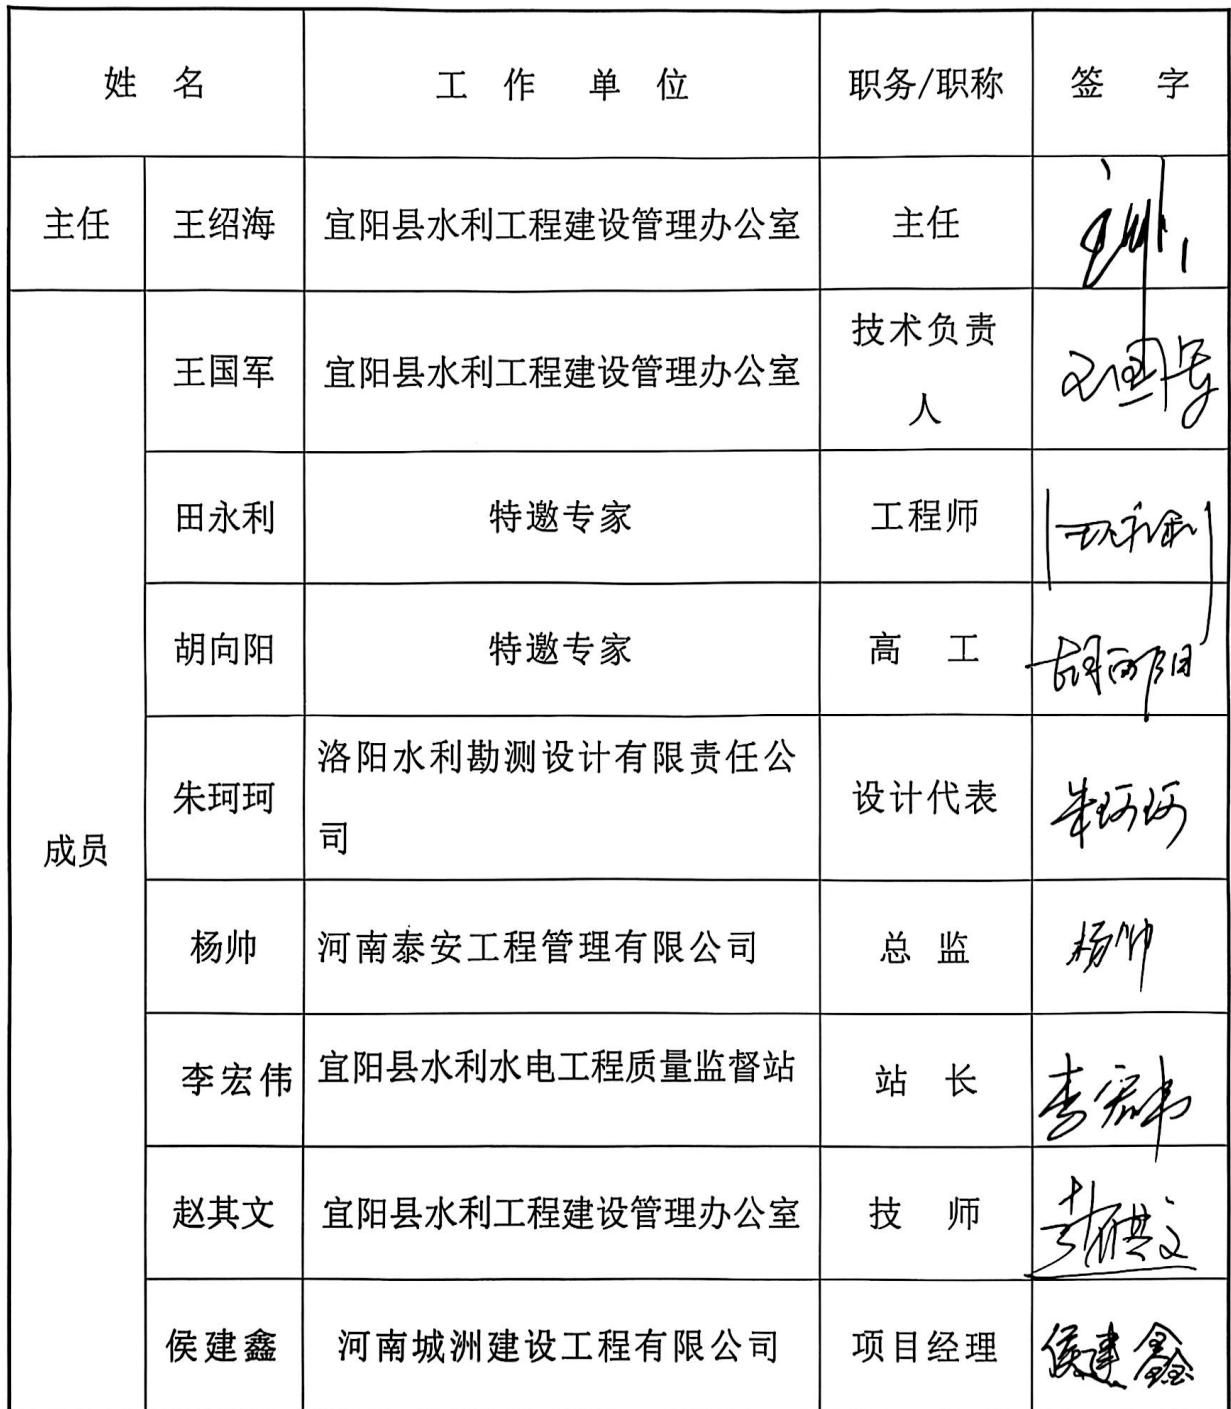 姓 名 工 作 单 位 职务/职称 签 字
主任 王绍海 宜阳县水利工程建设管理办公室 主任
成员
王国军 宜阳县水利工程建设管理办公室 技术负责
人
王国军
田永利 特邀专家 工程师 田永利
胡向阳 特邀专家 高 工 胡向阳
朱珂珂 洛阳水利勘测设计有限责任公
司
设计代表 朱珂珂
杨帅 河南泰安工程管理有限公司 总 监 杨帅
李宏伟 宜阳县水利水电工程质量监督站 站 长 李宏伟
赵其文 宜阳县水利工程建设管理办公室 技 师 赵其文
侯建鑫 河南城洲建设工程有限公司 项目经理 侯建鑫